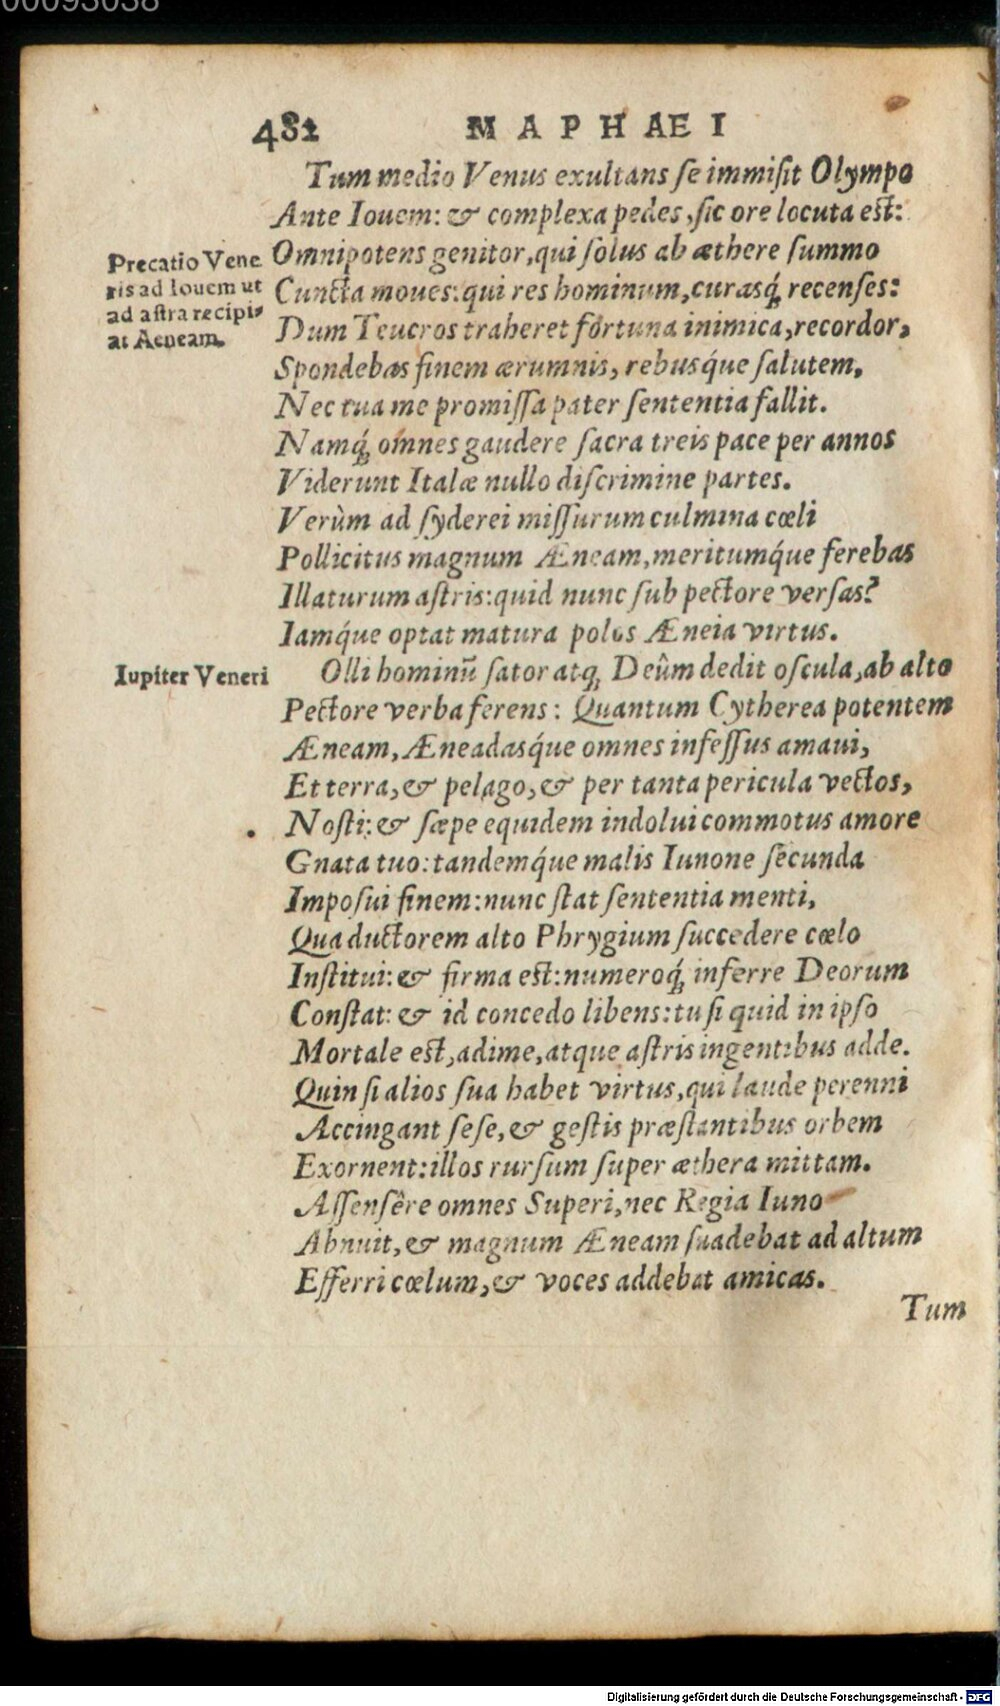 00093038
482 MAPHAEI
Tum medio Venus exultans se immisit Olympo
Ante Iouem: & complexa pedes, sic ore locuta est:
Precatio Vene
ris ad Iouem ut
ad astra recipi-
at Aeneam.
Omnipotens genitor, qui solus ab æthere summo
Cuncta moues: qui res hominum, curasq́; recenses:
Dum Teucros traheret fortuna inimica, recordor,
Spondebas finem ærumnis, rebusq́ue salutem,
Nec tua me promissa pater sententia fallit.
Namq́; omnes gaudere sacra treis pace per annos
Viderunt Italæ nullo discrimine partes.
Verùm ad syderei missurum culmina cœli
Pollicitus magnum Æneam, meritumq́ue ferebas
Illaturum astris: quid nunc sub pectore versas?
Iamq́ue optat matura polos Æneia virtus.
Iupiter Veneri
Olli hominū sator atq; Deûm dedit oscula, ab alto
Pectore verba ferens: Quantum Cytherea potentem
Æneam, Æneadasq́ue omnes infessus amaui,
Et terra, & pelago, & per tanta pericula vectos,
Nosti: & sæpe equidem indolui commotus amore
Gnata tuo: tandemq́ue malis Iunone secunda
Imposui finem: nunc stat sententia menti,
Qua ductorem alto Phrygium succedere cœlo
Institui: & firma est: numeroq́; inferre Deorum
Constat: & id concedo libens: tu si quid in ipso
Mortale est, adime, atque astris ingentibus adde.
Quin si alios sua habet virtus, qui laude perenni
Accingant sese, & gestis præstantibus orbem
Exornent: illos rursum super æthera mittam.
Assensêre omnes Superi, nec Regia Iuno
Abnuit, & magnum Æneam suadebat ad altum
Efferri cœlum, & voces addebat amicas.
Tum
Digitalisierung gefördert durch die Deutsche Forschungsgemeinschaft - DFG